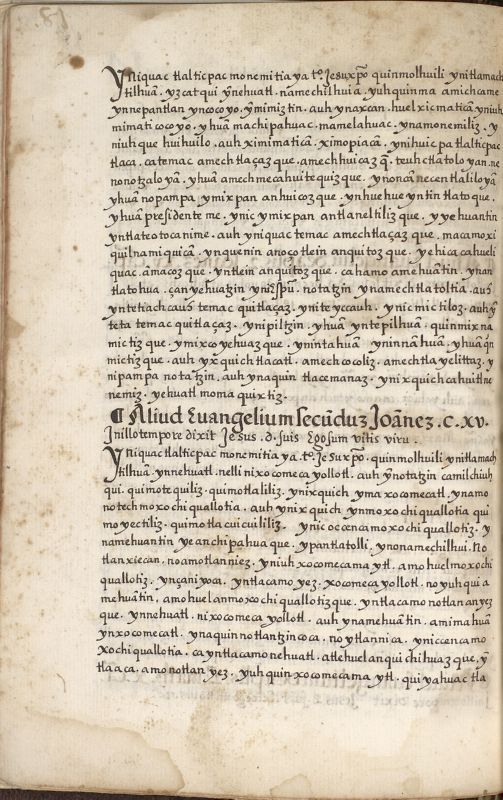 Yniquac tlalticpac monemitia ya tº. Jesuxp̄o quinmolhuili ynitlamach
tilhuā. yzcatqui ȳnehuatl. namechilhuia. yuhquinma amichcame
ynnepantlan yncocoyo. ȳmimiztin. auh ynaxcan. huel xicmaticā yniuh
mimati cocoyo. yhuā machipahuac. mamelahuac. ynamonemiliz. y
niuh que huihuilo. auh ximimaticā. ximopiacā. ynihuicpa tlalticpac
tlaca. catemac amechtlaçaz que. amechhuicaz q̄. teuhctlatoloyan. ne
nonotzaloyā. yhuā amechmecahuitequizque. ynoncā necentlaliloyā
yhuā nopampa. ymixpan anhuicoz que. ynhuehueyntin tlatoque.
yhuā presidente me. ynic ymixpan antlaneltiliz que. yyehuantin
yntlateotocanime. auh yniquac temac amechtlaçaz que. macamo xi
quilnamiquicā. ynquenin anoço tlein anquitoz que. yehica cahueli
quac. amacoz que. yntlein anquitoz que. cahamo amehuātin. ynan
tlatohua. çanyehuatzin ynespū. notatzin ynamechtlatoltia. auh
yntetiachcauh temac quitlaçaz. yniteyccauh. ynicmictiloz. auh ȳ
teta temac quitlaçaz. ynipiltzin. yhuā yntepilhuā. quinmixna
mictiz que. ymixcoyehuaz que. ynintahuā. ynin nāhuā. yhuā q̄n
mictiz que. auh yxquichtlacatl. amechcocoliz. amechtlayelittaz. y
nipampa notatzin. auh ynaquin tlacemanaz. ynixquichcahuitlne
nemiz. yehuatl momaquixtiz.
¶ Aliud Euangelium secūduz Joānez. C. XV.
Jn illo tempore dixit Jesus. d. suis Ego sum vitis vera.
Yniquac tlalticpac monemitia ya tº. Jesuxp̄o. quinmolhuili ynitlamach
tilhuā. ynnehuatl. nelli nixocomeca yollotl. auh ȳnotatzin camilchiuh
qui. quimotequiliz. quimotlaliliz. ynixquich yma xocomecatl. ynamo
notech moxochiquallotia. auh ynixquich ynmoxochiquallotia qui
moyectiliz. quimotlacuicuililiz. ynic occencamoxochiquallotiz. y
namehuantin yeanchipahuaque. ypantlatolli. ynonamechilhui. No
tlanxiecan. noamotlanniez. yniuh xocomecama ytl. amohuelmoxochi
quallotiz. ynçaniyoca. yntlacamo yez. xocomeca yollotl. noyuhqui a
mehuātin. amohuelanmoxochiquallotizque. yntlacamo notlan anyez
que. ynnehuatl. nixocomeca yollotl. auh ynamehuātin. amimahuā
ynxocomecatl. ynaquin notlantzincoca. noytlannica. yniccencamo
xochiquallotia. cayntlacamo nehuatl. atlehuelanquichihuaz que. ȳ
tlaaca. amo notlan yez. yuhquin xocomecama ytl. quiyahuac tla